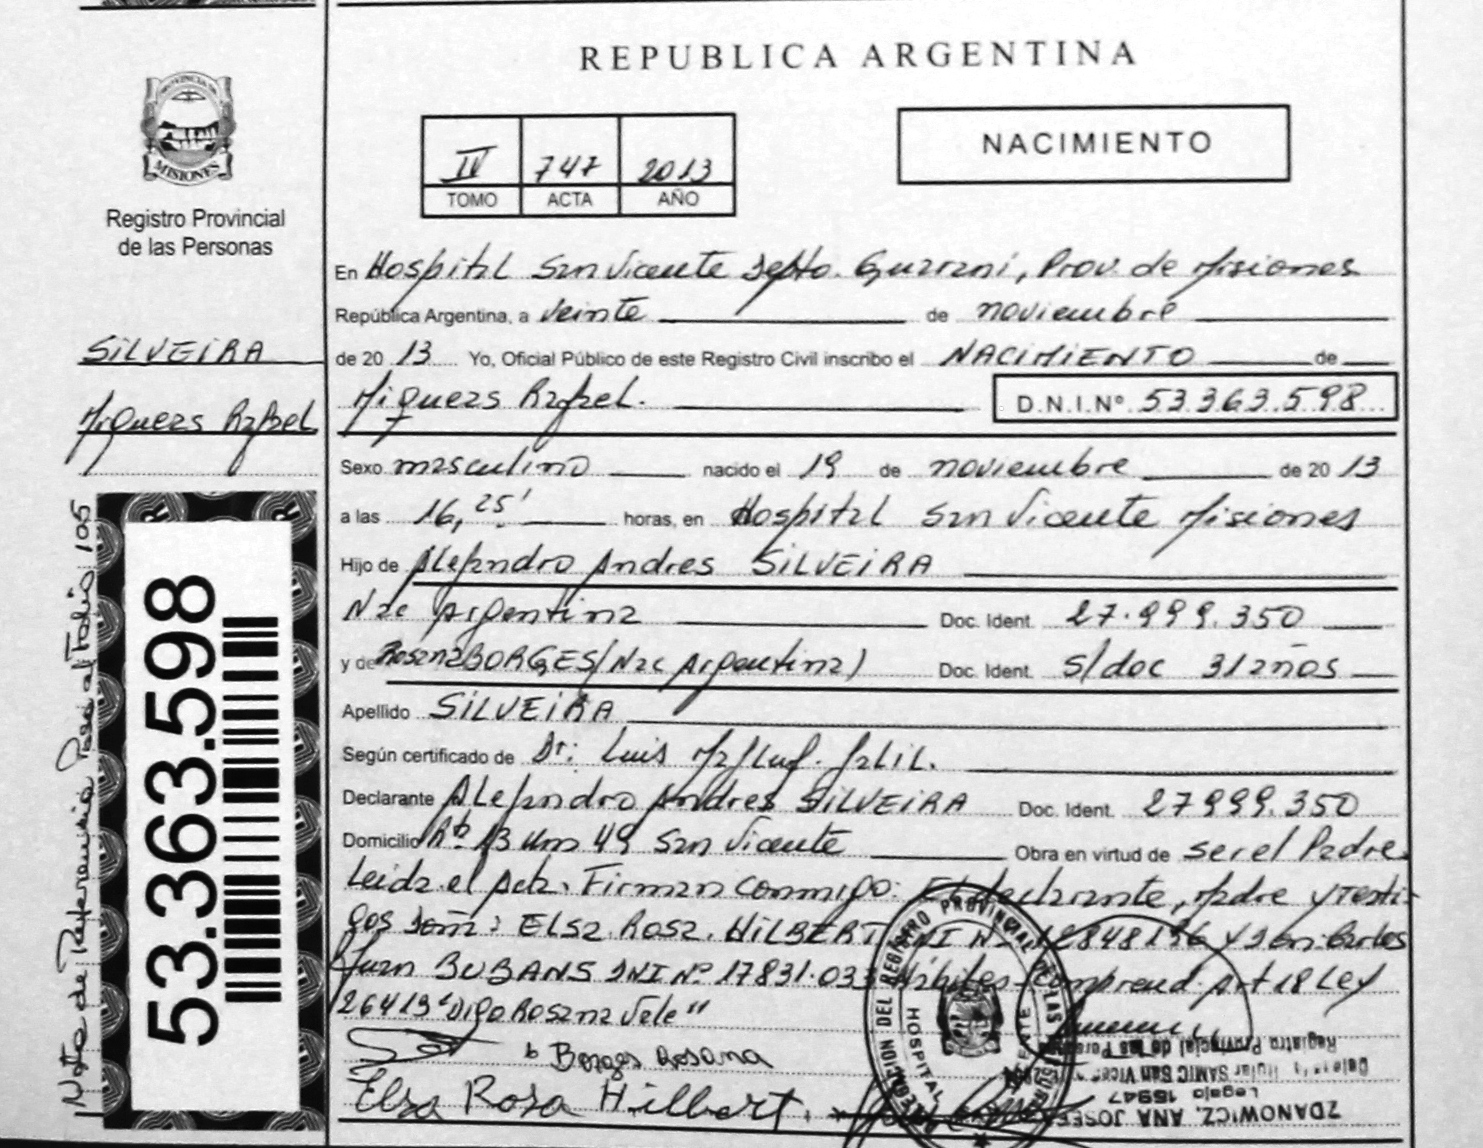 REPUBLICA ARGENTINA
PROVINCIA DE
MISIONES
Registro Provincial
de las Personas
IV 747 2013
TOMO ACTA AÑO
NACIMIENTO
En Hospital San Vicente Depto. Guarani, Prov. de Misiones
República Argentina, a veinte de noviembre
de 20 13 Yo, Oficial Público de este Registro Civil inscribo el NACIMIENTO de
Miqueas Rafael. D.N.I.Nº 53.363.598
SILVEIRA
Miqueas Rafael
Sexo masculino nacido el 19 de noviembre de 20 13
a las 16,25' horas, en Hospital San Vicente Misiones
Hijo de Alejandro Andres SILVEIRA
Nac Argentina Doc. Ident. 27.999.350
y de Rosana BORGES (Nac Argentina) Doc. Ident. S/doc 31 años
Apellido SILVEIRA
Según certificado de Dr: Luis Maluf. Jalil.
Declarante Alejandro Andres SILVEIRA Doc. Ident. 27999.350
Domicilio Rta 13 km 49 San Vicente Obra en virtud de ser el Padre
Leida el Acta. Firman conmigo: El declarante, Madre y testi-
gos Doña: ELSA. ROSA. HILBERT DNI Nº 12848136 y Don Carlos
Juan BUBANS DNI Nº 17831.033 Hábiles Comprend. Art 18 Ley
26413 "Digo Rosana Vale"
Borges Rosana
Elsa Rosa Hilbert
53.363.598
Nota de Referencia Pasa al Folio 105
DELEGACION DEL REGISTRO PROVINCIAL DE LAS PERSONAS
HOSPITAL
ZDANOWICZ, ANA JOSEF
Legajo 15947
Titular SAMIC San Vicente
Registro Provincial de las Personas